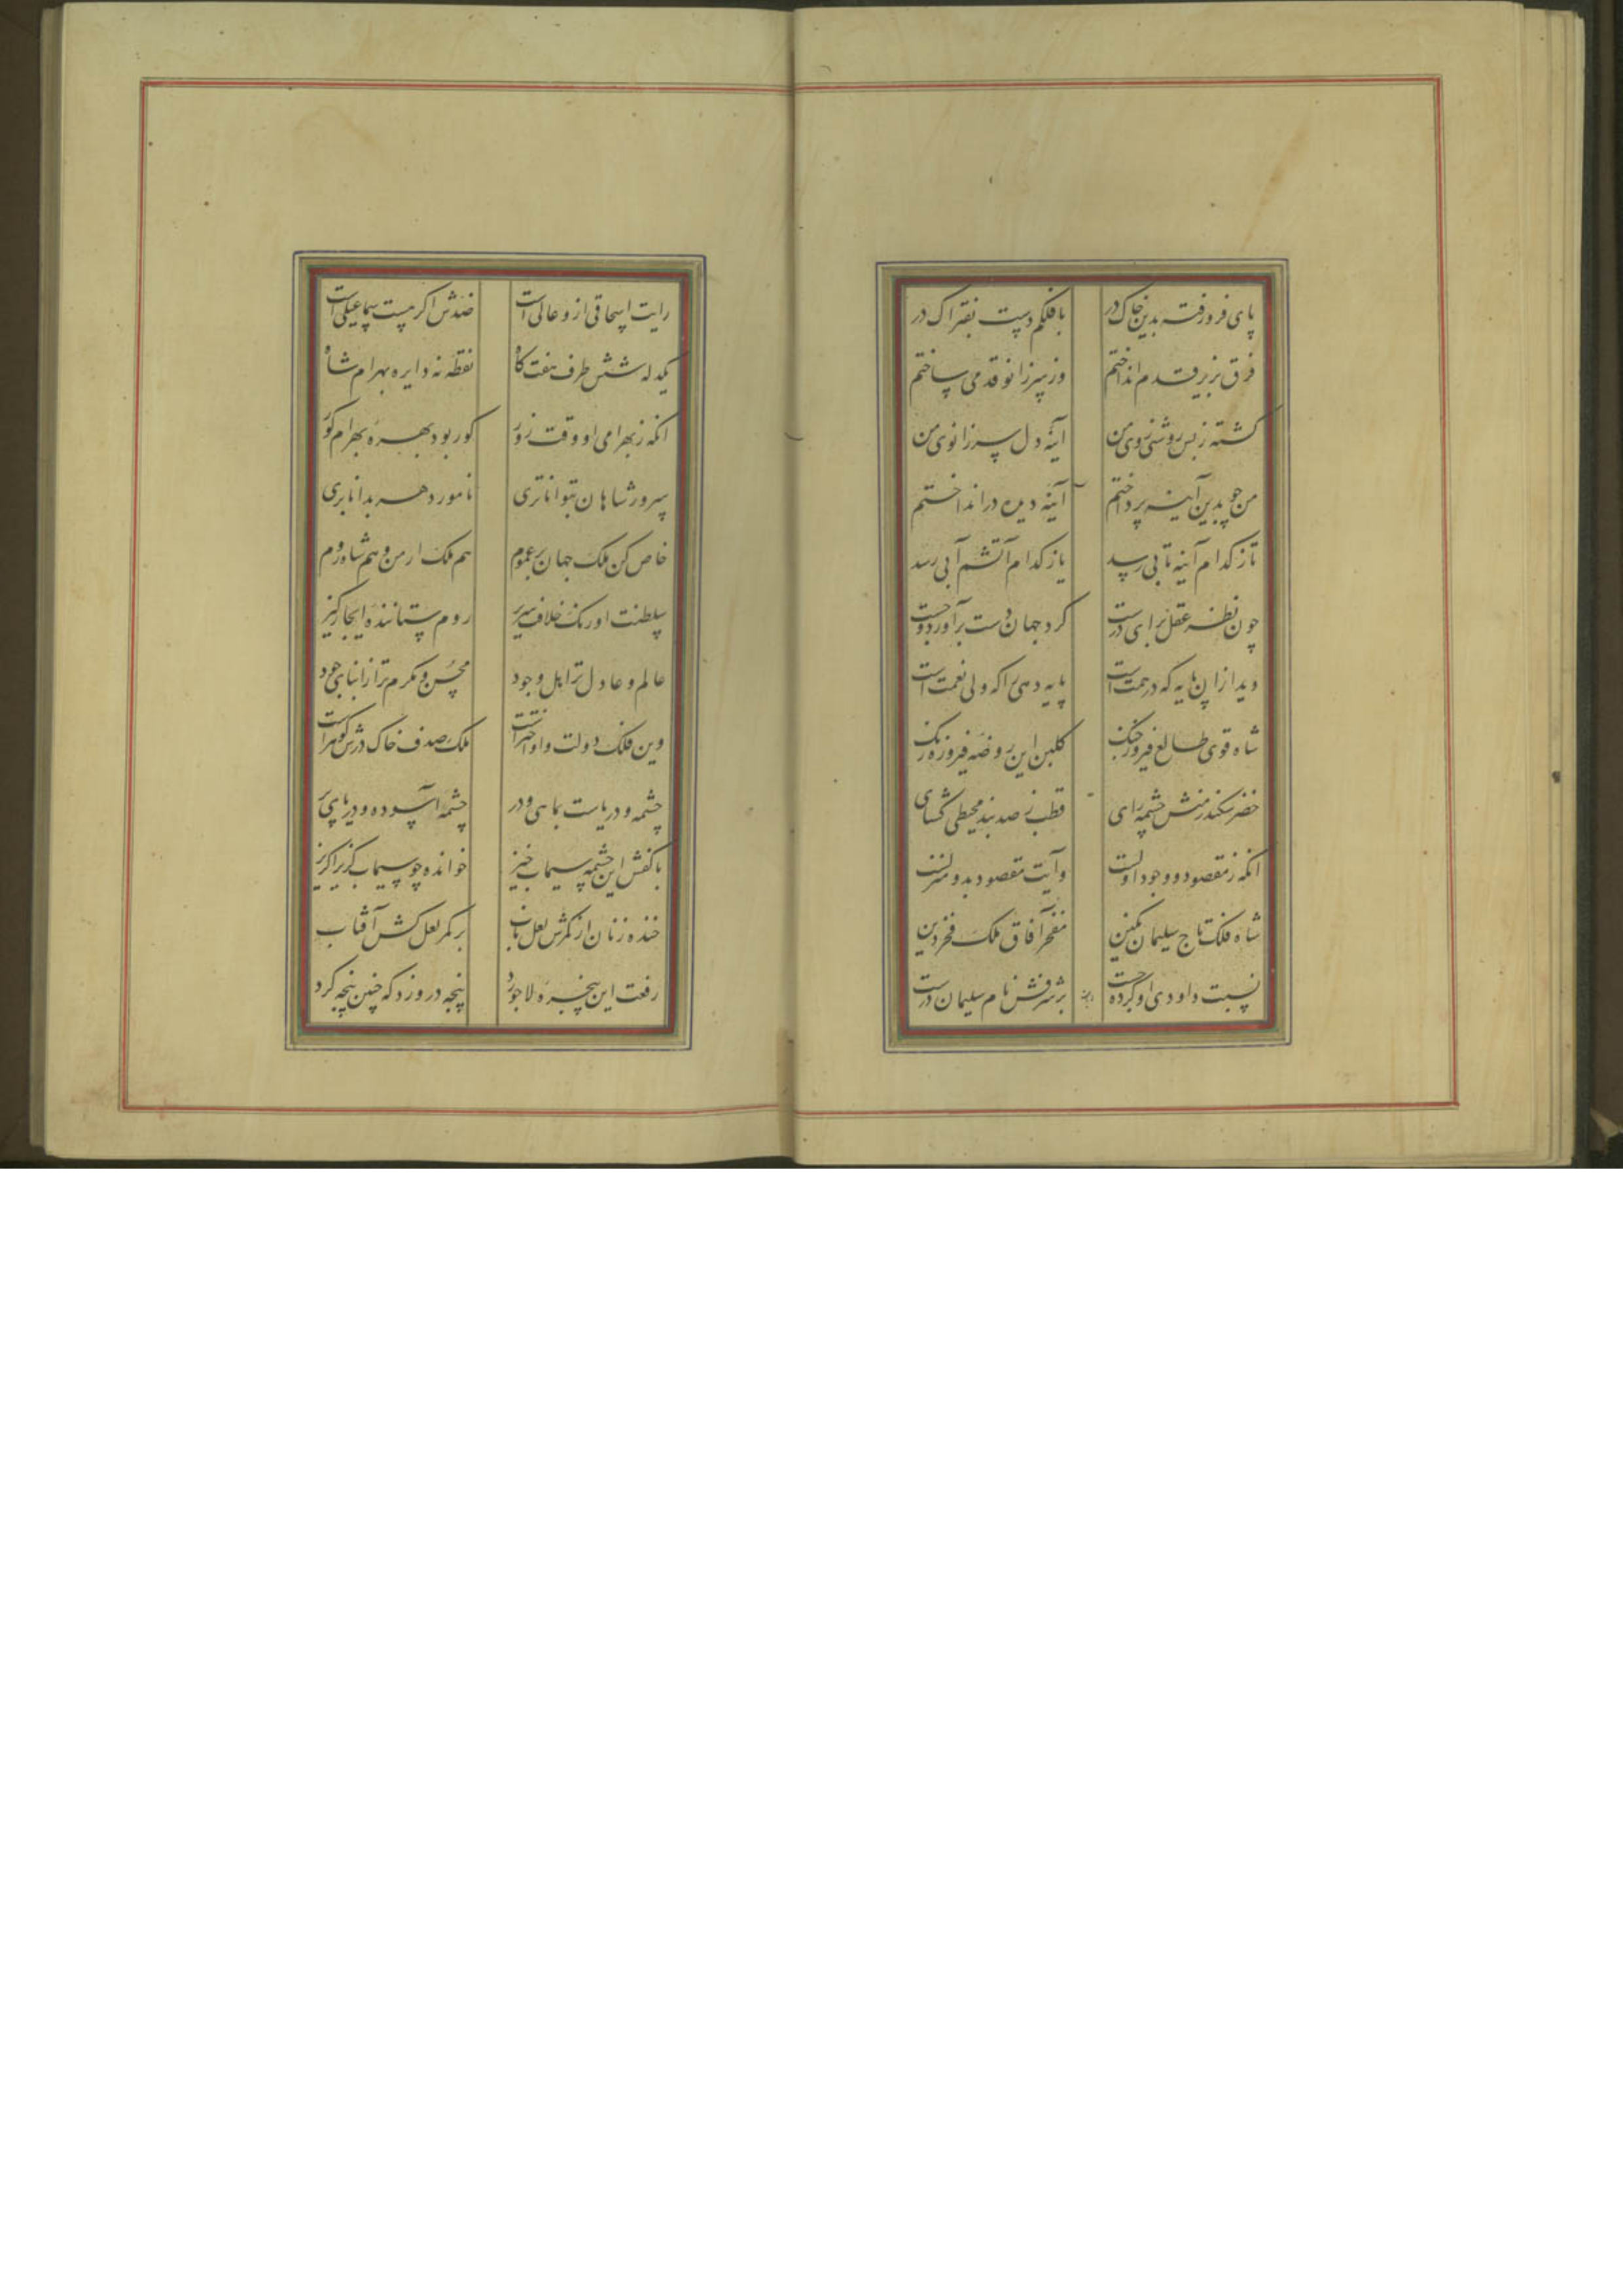 پای فرو رفته بدین خاک در
با فلکم دست بفتراک در
فرق بزیر قدم انداختم
وز سر زانو قدمی ساختم
گشته ز بس روشنی روی من
آینه دل سر زانوی من
من چو بدین آینه پرداختم
آینه دیده درانداختم
تا ز کدام آینه تابی رسد
یا ز کدام آتشم آبی رسد
چون نظر عقل برای درست
گرد جهان دست برآورد و جست
دید ازان پایه که در همت است
پایه دهی را که ولی نعمت است
شاه قوی طالع فیروز جنک
گلبن این روضه فیروزه رنک
خضر سکندر منش چشمه رای
قطب رصد بند محیطی گشای
انکه ز مقصود وجود اولست
وآیت مقصود بدو منزلست
شاه فلک تاج سلیمان نکین
مفخر آفاق ملک فخر دین
نسبت داودی او کرده چست
بر شرفش نام سلیمان درست
رایت اسحاقی ازو عالی است
ضدش اکر هست سماعیلی است
یکدله شش طرف هفت کاه
نقطه نه دایره بهرام شاه
انکه ز بهرامی او وقت زور
کور بود بهره بهرام کور
سرور شاهان بتواناتری
نامور دهر بداناتری
خاص کن ملک جهان بر عموم
هم ملک ارمن و هم شاه روم
سلطنت اورنک خلافت سریر
روم ستاننده ابخاز کیر
عالم و عادل تر اهل وجود
محسن و مکرم تر از ابنای جود
وین فلک دولت و او اختر است
ملک صدف خاک درش کوهر است
چشمه و دریاست بماهی و در
چشمه آسوده و دریای پر
با کفش این چشمه سیماب خیز
خوانده چو سیماب کریزا کریز
خنده زنان از کمرش لعل ناب
بر کمر لعل کش آفتاب
رفعت این پنجره لاجورد
پنجه درو زد که چنین پنجه کرد